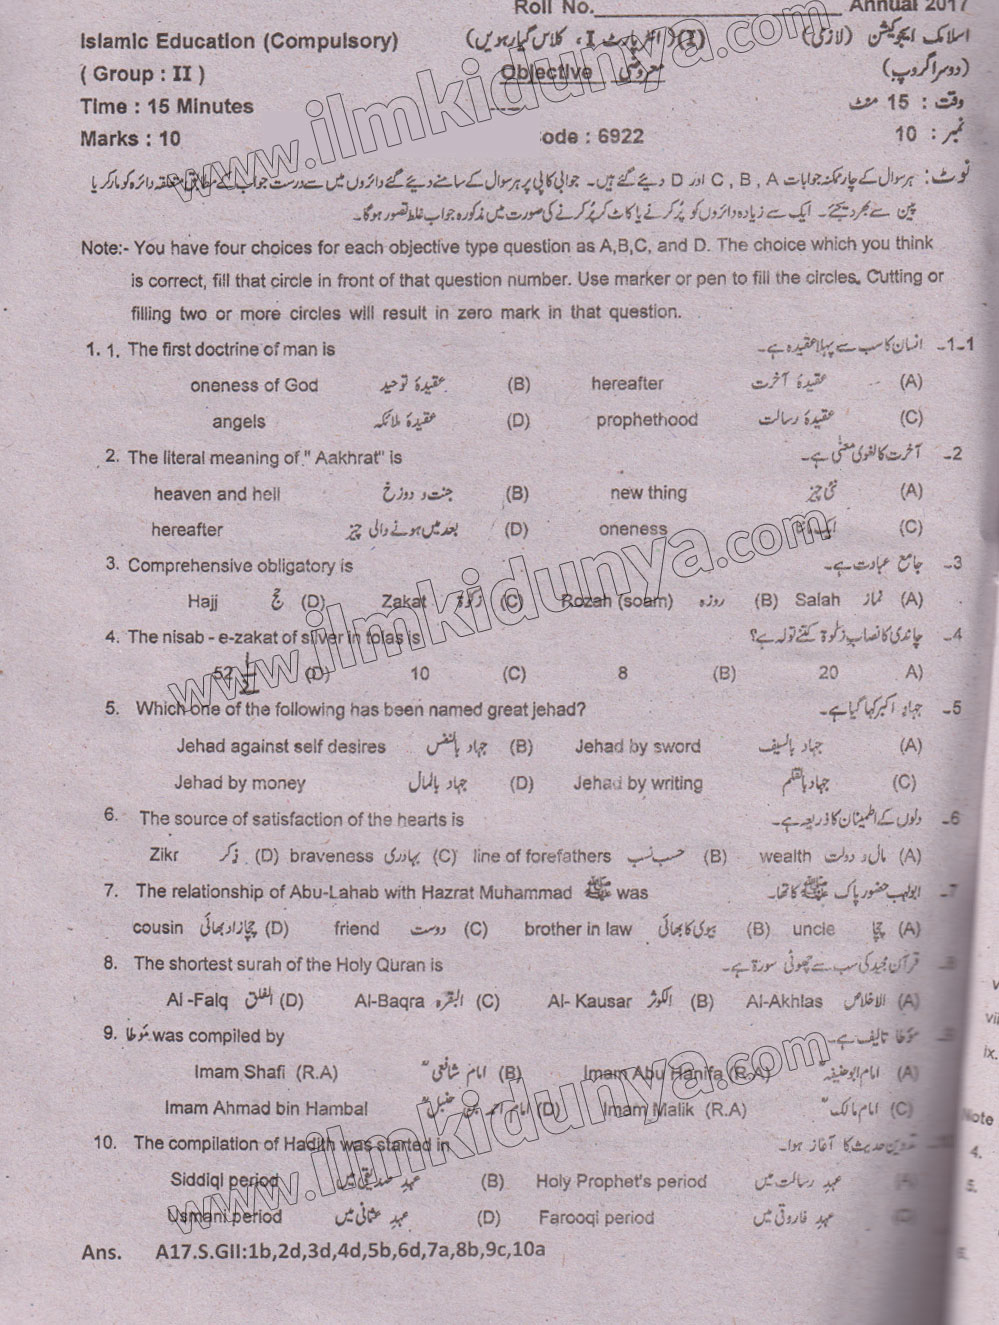 Roll No.____________________ Annual 2017
Islamic Education (Compulsory) (I) (انٹر پارٹ I، کلاس گیارہویں) اسلامک ایجوکیشن (لازمی)
( Group : II ) Objective معروضی (دوسرا گروپ)
Time : 15 Minutes وقت : 15 منٹ
Marks : 10 ode : 6922 نمبر : 10
نوٹ: ہر سوال کے چار ممکنہ جوابات A ، B ، C اور D دیئے گئے ہیں۔ جوابی کاپی پر ہر سوال کے سامنے دیئے گئے دائروں میں سے درست جواب کے مطابق متعلقہ دائرہ کو مارکر یا
پین سے بھر دیجئے۔ ایک سے زیادہ دائروں کو پُر کرنے یا کاٹ کر پُر کرنے کی صورت میں مذکورہ جواب غلط تصور ہوگا۔
Note:- You have four choices for each objective type question as A,B,C, and D. The choice which you think
is correct, fill that circle in front of that question number. Use marker or pen to fill the circles. Cutting or
filling two or more circles will result in zero mark in that question.
1. 1. The first doctrine of man is انسان کا سب سے پہلا عقیدہ ہے۔ -1-1
oneness of God عقیدۂ توحید (B) hereafter عقیدۂ آخرت (A)
angels عقیدۂ ملائکہ (D) prophethood عقیدۂ رسالت (C)
2. The literal meaning of " Aakhrat" is آخرت کا لغوی معنٰی ہے۔ -2
heaven and hell جنت و دوزخ (B) new thing نئی چیز (A)
hereafter بعد میں ہونے والی چیز (D) oneness ایک (C)
3. Comprehensive obligatory is جامع عبادت ہے۔ -3
Hajj حج (D) Zakat زکوٰۃ (C) Rozah (soam) روزہ (B) Salah نماز (A)
4. The nisab - e-zakat of silver in tolas is چاندی کا نصاب زکوٰۃ کتنے تولہ ہے؟ -4
52 ½ (D) 10 (C) 8 (B) 20 A)
5. Which one of the following has been named great jehad? جہاد اکبر کہا گیا ہے۔ -5
Jehad against self desires جہاد بالنفس (B) Jehad by sword جہاد بالسیف (A)
Jehad by money جہاد بالمال (D) Jehad by writing جہاد بالقلم (C)
6. The source of satisfaction of the hearts is دلوں کے اطمینان کا ذریعہ ہے۔ -6
Zikr ذکر (D) braveness بہادری (C) line of forefathers حسب نسب (B) wealth مال و دولت (A)
7. The relationship of Abu-Lahab with Hazrat Muhammad ﷺ was ابولہب حضور پاک ﷺ کا تھا۔ -7
cousin چچا زاد بھائی (D) friend دوست (C) brother in law بیوی کا بھائی (B) uncle چچا (A)
8. The shortest surah of the Holy Quran is قرآن مجید کی سب سے چھوٹی سورۃ ہے۔ -8
Al -Falq الفلق (D) Al-Baqra البقرہ (C) Al- Kausar الکوثر (B) Al-Akhlas الاخلاص (A)
9. مؤطا was compiled by مؤطا تالیف ہے۔ -9
Imam Shafi (R.A) امام شافعیؒ (B) Imam Abu Hanifa (R.A) امام ابو حنیفہؒ (A)
Imam Ahmad bin Hambal امام احمد بن حنبلؒ (D) Imam Malik (R.A) امام مالکؒ (C)
10. The compilation of Hadith was started in تدوین حدیث کا آغاز ہوا۔ -10
Siddiqi period عہد صدیقی میں (B) Holy Prophet's period عہد رسالت میں (A)
Usmani period عہد عثمانی میں (D) Farooqi period عہد فاروقی میں (C)
Ans. A17.S.GII:1b,2d,3d,4d,5b,6d,7a,8b,9c,10a
www.ilmkidunya.com
www.ilmkidunya.com
www.ilmkidunya.com
vii
ix.
Note
4.
5.
6.